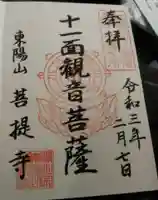 奉拝
令和三年
二月七日
十一面観音菩薩
東陽山
菩提寺